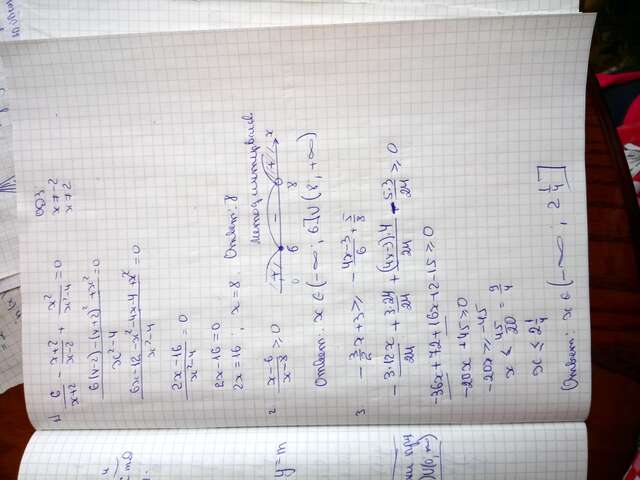 1) 6/(x+2) - (x+2)/(x-2) + x²/(x²-4) = 0
ОДЗ
x ≠ -2
x ≠ 2
(6(x-2) - (x+2)² + x²)/(x²-4) = 0
(6x-12-x²-4x-4+x²)/(x²-4) = 0
(2x-16)/(x²-4) = 0
2x-16=0
2x=16; x=8. Ответ: 8
2 (x-6)/(x-8) ≥ 0
метод интервалов
+ - + x
6 8
Ответ: x ∈ (-∞; 6] ∪ (8; +∞)
3 -3/2 x + 3 ≥ - (4x-3)/6 + 5/8
- 3·12x/24 + 3·24/24 + (4x-3)·4/24 - 5·3/24 ≥ 0
-36x + 72 + 16x - 12 - 15 ≥ 0
-20x + 45 ≥ 0
-20x ≥ -45
x ≤ 45/20 = 9/4
x ≤ 2 1/4
Ответ: x ∈ (-∞; 2 1/4]
y=m